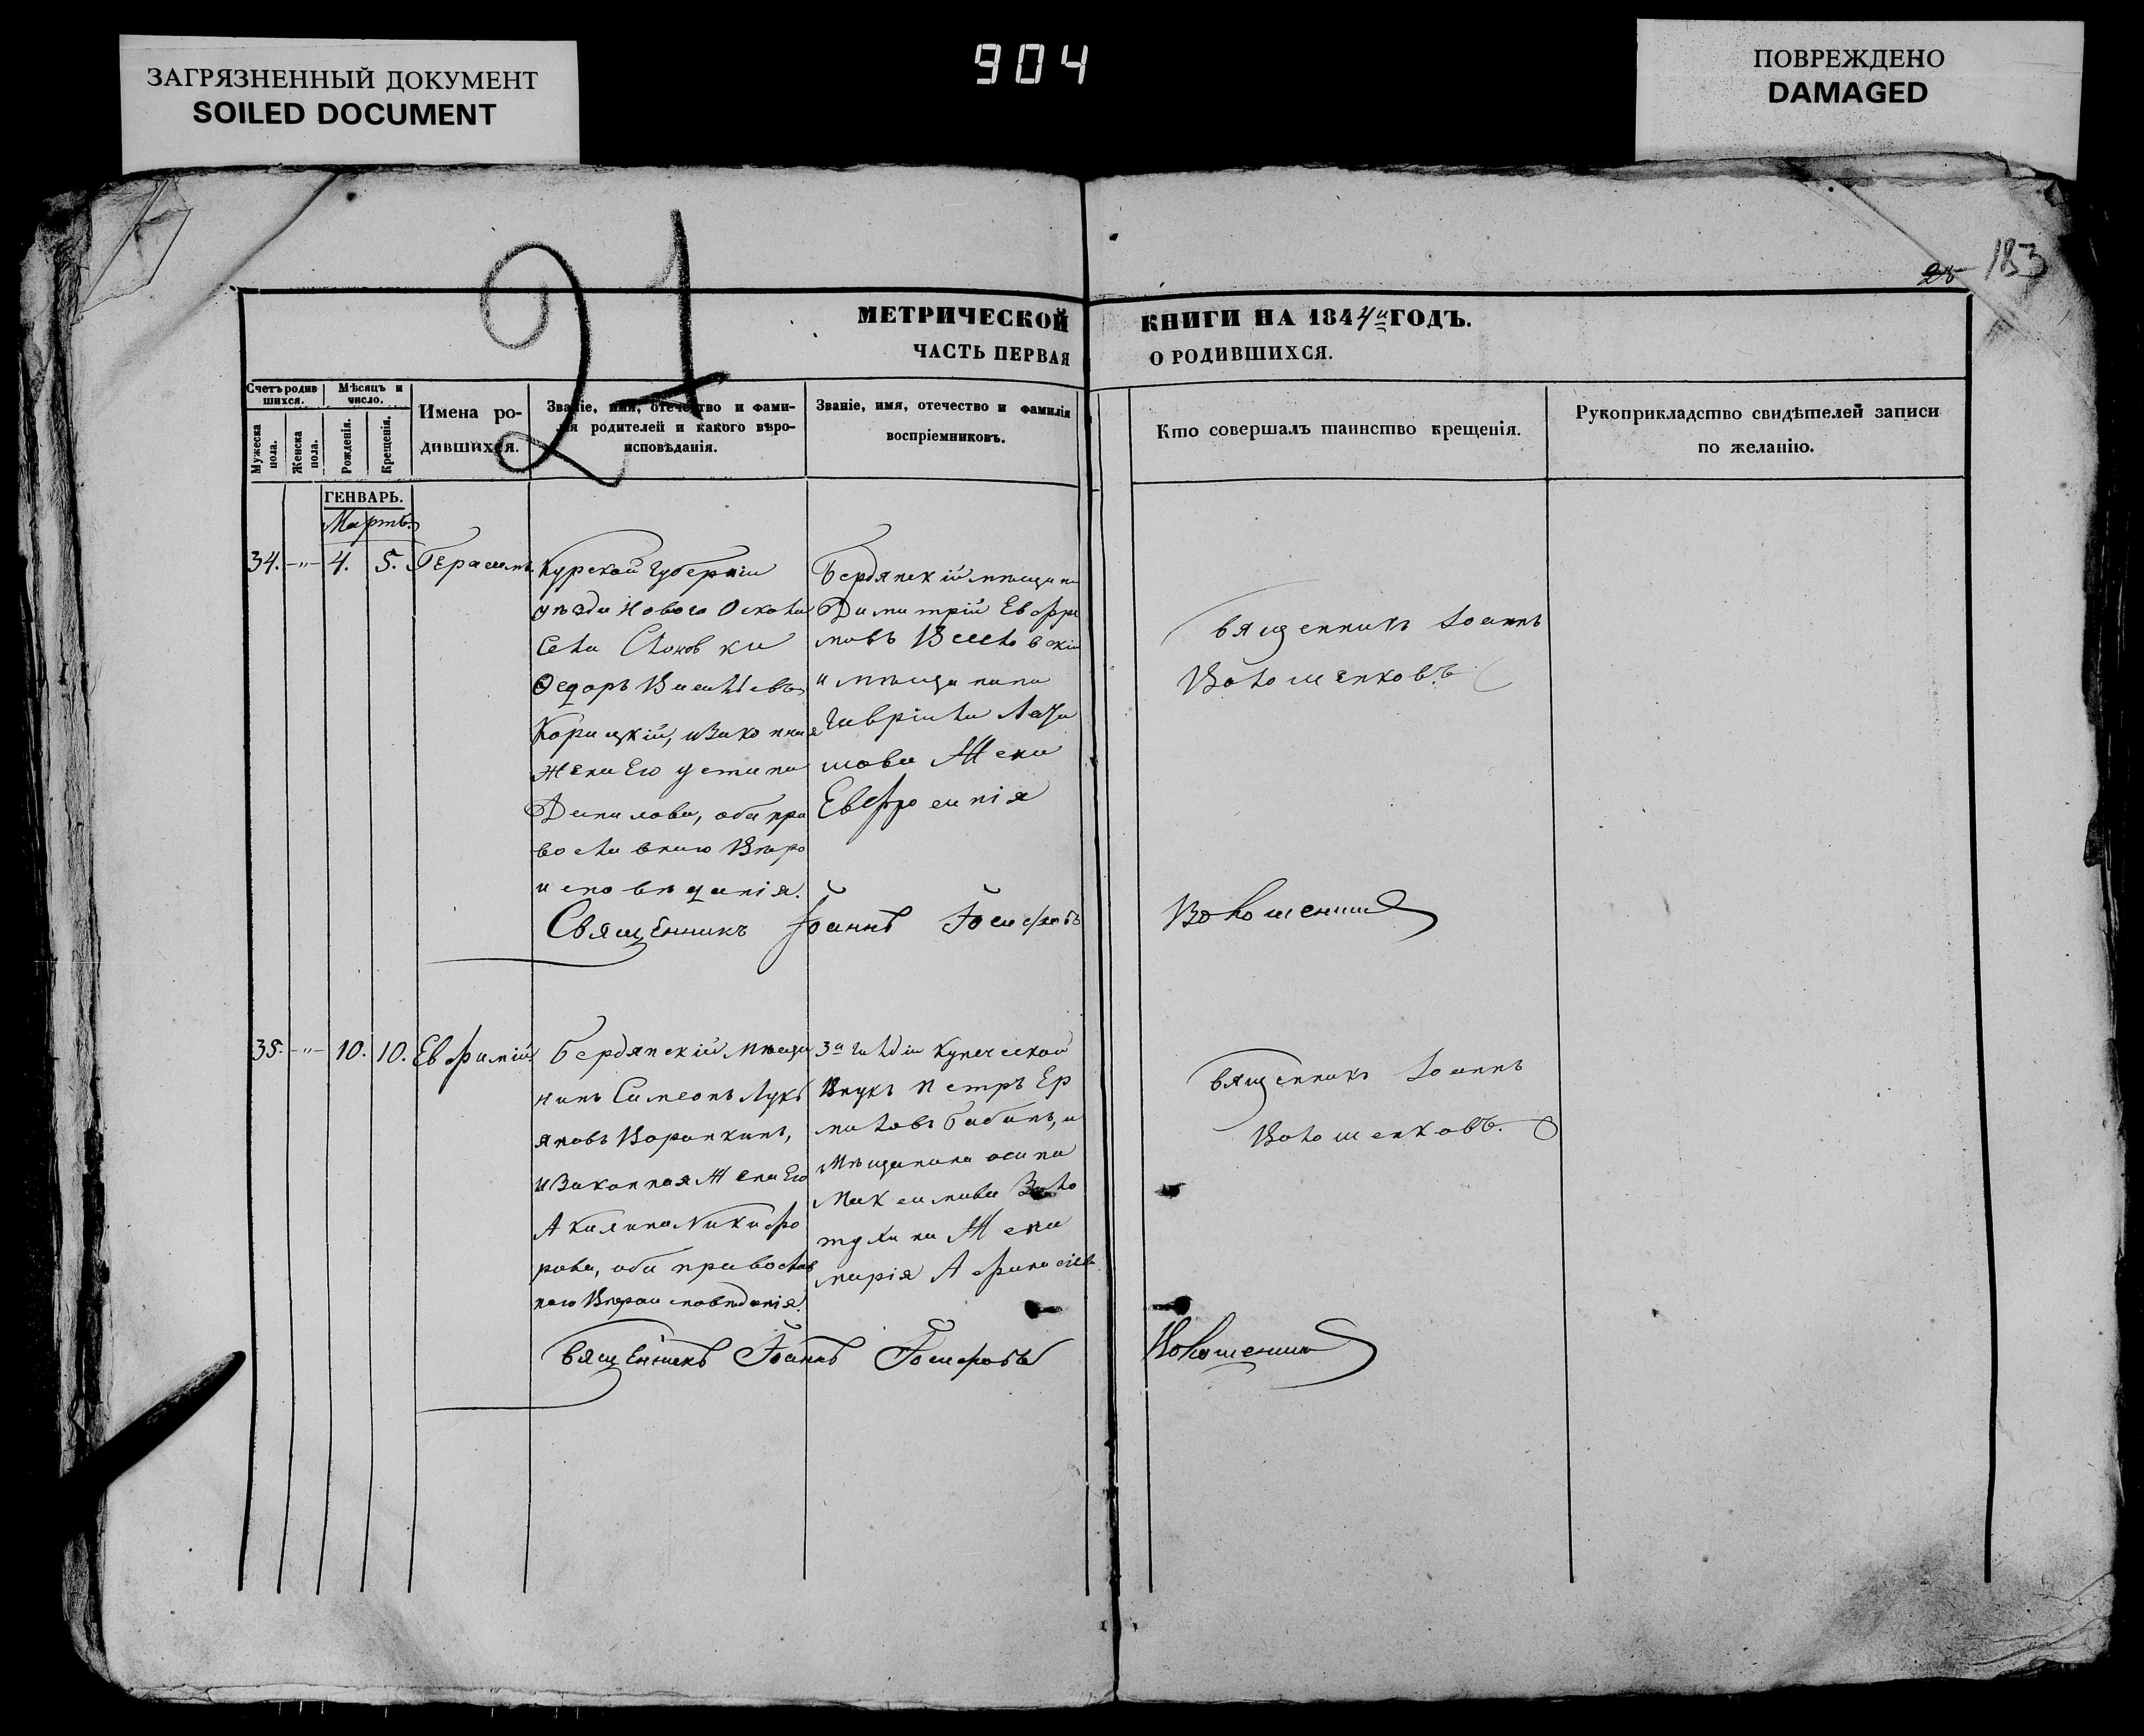 904
ЗАГРЯЗНЕННЫЙ ДОКУМЕНТ
SOILED DOCUMENT
ПОВРЕЖДЕНО
DAMAGED
183
21
МЕТРИЧЕСКОЙ КНИГИ НА 1844й ГОДЪ.
ЧАСТЬ ПЕРВАЯ О РОДИВШИХСЯ.
Счетъ родив
шихся.
Мужеска
пола.
Женска
пола.
Мѣсяцъ и
число.
Рожденія.
Крещенія.
Имена ро-
дившихся.
Званіе, имя, отечество и фами-
лія родителей и какого вѣро-
исповѣданія.
Званіе, имя, отечество и фамилія
воспріемниковъ.
Кто совершалъ таинство крещенія.
Рукоприкладство свидѣтелей записи
по желанію.
ГЕНВАРЬ.
Мартъ.
34. -"- 4. 5. Герасимъ
Курской Губерніи
уѣзда Нового Оскола
Села Слоновки
Ѳедоръ Васильевъ
Корицкій, изаконная
жена Его устина
Данилова, оба пра
вославнаго Вѣро
исповѣданія.
Бердянскій мѣщани
Димитрій Евфри
мовъ
и мѣщанина
Гавріила
жена
Евфросинія
Священникъ Іоаннъ
Волошенковъ
Священникъ Іоаннъ Іосифовъ Волошенко
35. -"- 10. 10. Евфимій
Бердянскій мѣща
нинъ Симеонъ Лукь
яновъ Воронкинъ,
и Законная Жена Его
Акилина Никифо
рова, оба православ
наго Вѣроисповѣданія.
3й гильдіи купеческой
Внукъ Петръ Ер
миловъ Бабинъ, и
Мѣщанина осипа
Максимова Золо
тухина Жена
марія Афанасіева
Священникъ Іоаннъ
Волошенковъ.
Священникъ Іоаннъ Іосифовъ Волошенко